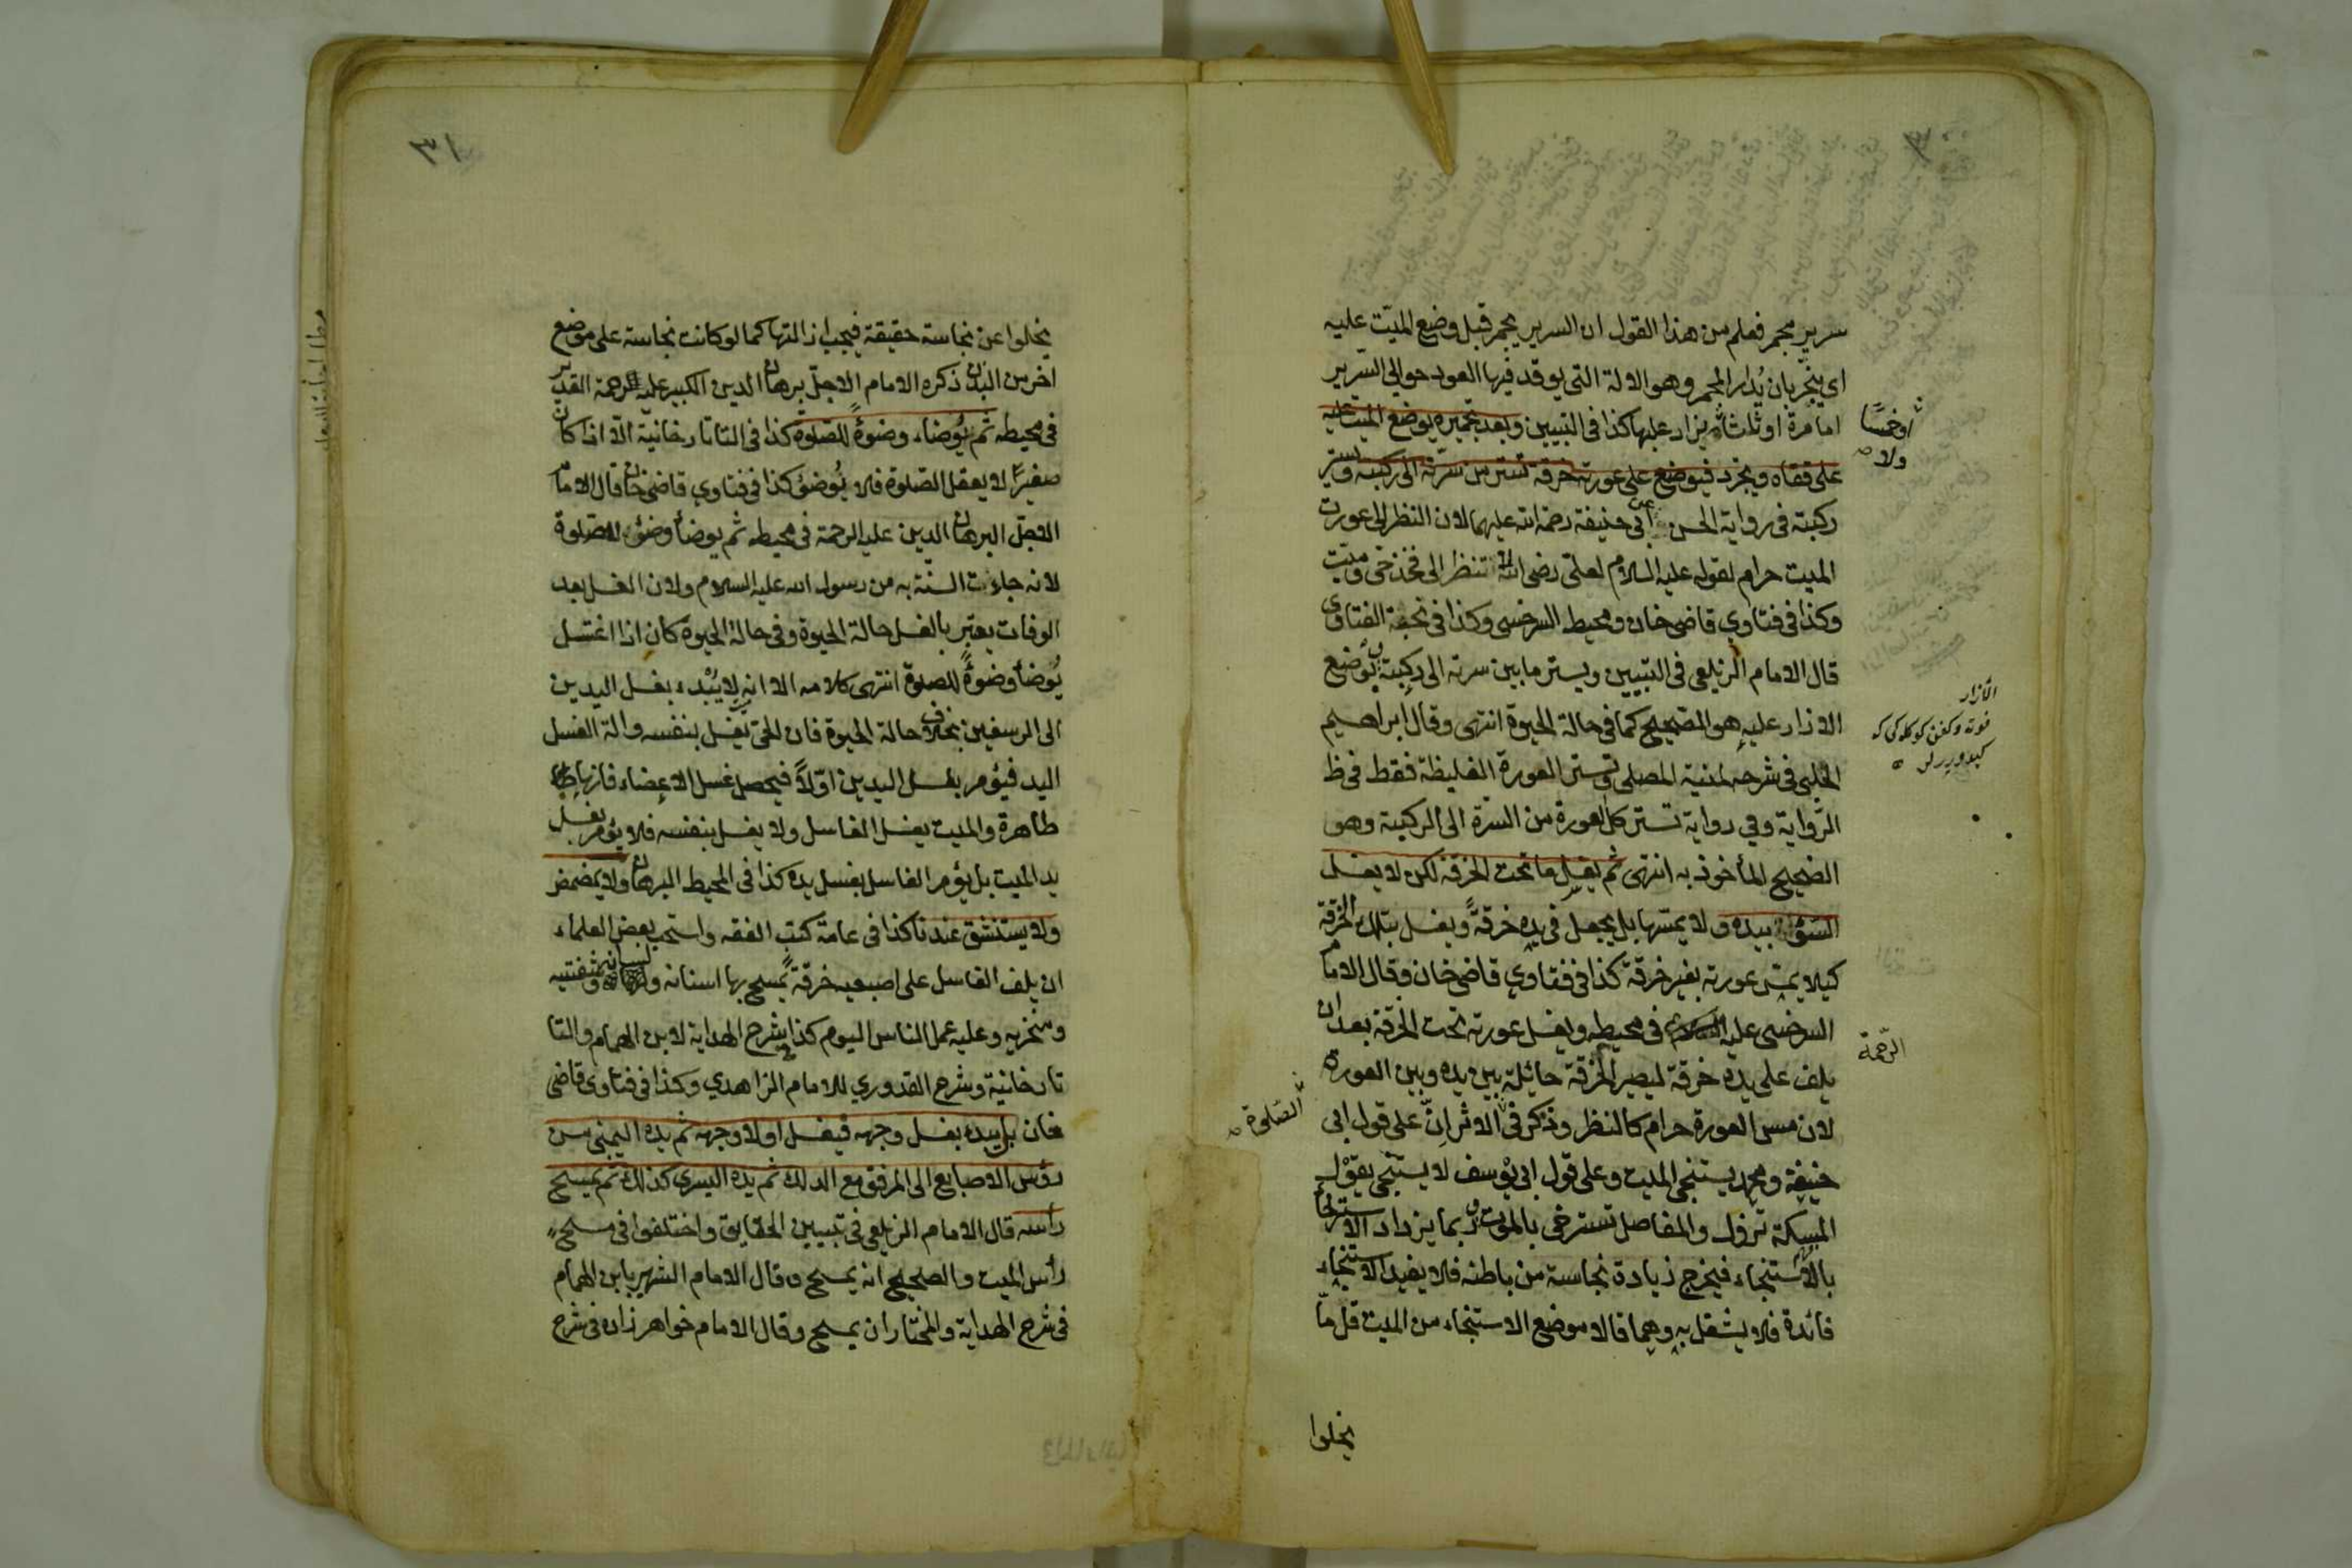 سرير مجمر فعلم من هذا القول ان السرير يجمر قبل وضع الميّت عليه
اي يبخّر بان يُدار المجمر وهو الالة التى يوقد فيها العود حوالى السّرير
اما مرة او ثلث يزاد عليها كذا فى التبيين وبعد تجميره يوضع الميت عليه
او خمسًا
ولا
على قفاه ويجرد فيوضع على عورته خرقة تستر من سرّته الى ركبته وتستر
ركبته فى رواية الحسن عن ابى حنيفة رحمة الله عليهما لان النظر الى عورت
الميت حرام لقوله عليه السلام لعلى رضى الله لا تنظر الى فخذ حىّ وميّت
وكذا فى فتاوي قاضى خان ومحيط السرخسى وكذا فى تحفة الفتاوى
قال الامام الزيلعى فى التبيين ويستر ما بين سرته الى ركبته يوضع
الازار عليه هو الصحيح كما فى حالة الحيوة انتهى وقال ابراهيم
الأزار
الحلبى فى شرحه لمنية المصلى وتستر العورة الغليظة فقط فى ظ
الرّواية وفي رواية تستر كل العورة من السّرة الى الركبة وهو
الصحيح المأخوذ به انتهى ثم يغسل ما تحت الخرقة لكن لا يغسل
بيده ولا يمسّها بل يجعل فى يده خرقة ويغسل بتلك الخرقة
كيلا يمسّ عورته بغير خرقة كذا فى فتاوي قاضى خان وقال الامام
السرخسى عليه فى محيطه ويغسل عورته تحت الخرقة بعد ان
الرّحمة
يلف على يده خرقة ليصير الخرقة حائلة بين يده وبين العورة
لان مس العورة حرام كالنظر وذكر فى الاثر انّ على قول ابى
الصّلوة
حنيفة ومحمد يستنجى الميت وعلى قول ابى يوسف لا يستنجى يقول
المسكة تزول والمفاصل تسترخى بالموت ربما يزداد الاسترخاء
بالاستنجاء فيخرج زيادة نجاسة من باطنه فلا يفيد الاستنجاء
فائدة فلا يشتغل به وهما قالا موضع الاستنجاء من الميت قل ما
يخلوا
٣١
يخلوا عن نجاسة حقيقة فيجب ازالتها كما لو كانت نجاسة على موضع
اخر من البدن ذكره الامام الاجلّ برهان الدين الكبير عليه الرحمة القدير
فى محيطه ثم يُوضاء وضوءً للصلوة كذا فى التاتارخانية الا اذا كان
صغيرًا لا يعقل الصّلوة فلا يُوضؤ كذا فى فتاوي قاضى خان قال الامام
الاجلّ البرهان الدين عليه الرحمة فى محيطه ثم يوضأ وضوء للصّلوة
لانه جاءت السنّة به من رسول الله عليه السلام ولان الغسل بعد
الوفات يعتبر بالغسل حالة الحيوة وفى حالة الحيوة كان اذا اغتسل
يُوضأ وضوءً للصلوة انتهى كلامه الا انه لا يُبْدء بغسل اليدين
الى الرسغين بخلاف حالة الحيوة فان الحى يغسل بنفسه والة الغسل
اليد فيؤمر بغسل اليدين اوّلاً فيحصل غسل الاعضاء فانها
طاهرة والميت يغسل الغاسل ولا يغسل بنفسه فلا يؤمر بغسل
يد الميت بل يؤمر الغاسل بغسل يده كذا فى المحيط البرهان ولا يمضمض
ولا يستنشق عندنا كذا فى عامة كتب الفقه واستحب بعض العلماء
ان يلف الغاسل على اصبعيه خرقة يمسح بها اسنانه ولسانه وشفتيه
ومنخريه وعليه عمل الناس اليوم كذا شرح الهداية لابن الهمام والتا
تارخانية وشرح القدوري للامام الزاهدي وكذا فى فتاوى قاضى
خان بل يبدء بغسل وجهه فيغسل اولا وجهه ثم يده اليمنى من
رؤس الاصابع الى المرفق مع الدلك ثم يده اليسرى كذلك ثم يمسح
راسه قال الامام الزيلعى فى تبيين الحقايق واختلفوا فى مسح
رأس الميت والصحيح انه يمسح وقال الامام الشهير بابن الهمام
فى شرح الهداية والمختار ان يمسح وقال الامام خواهر زاده فى شرح